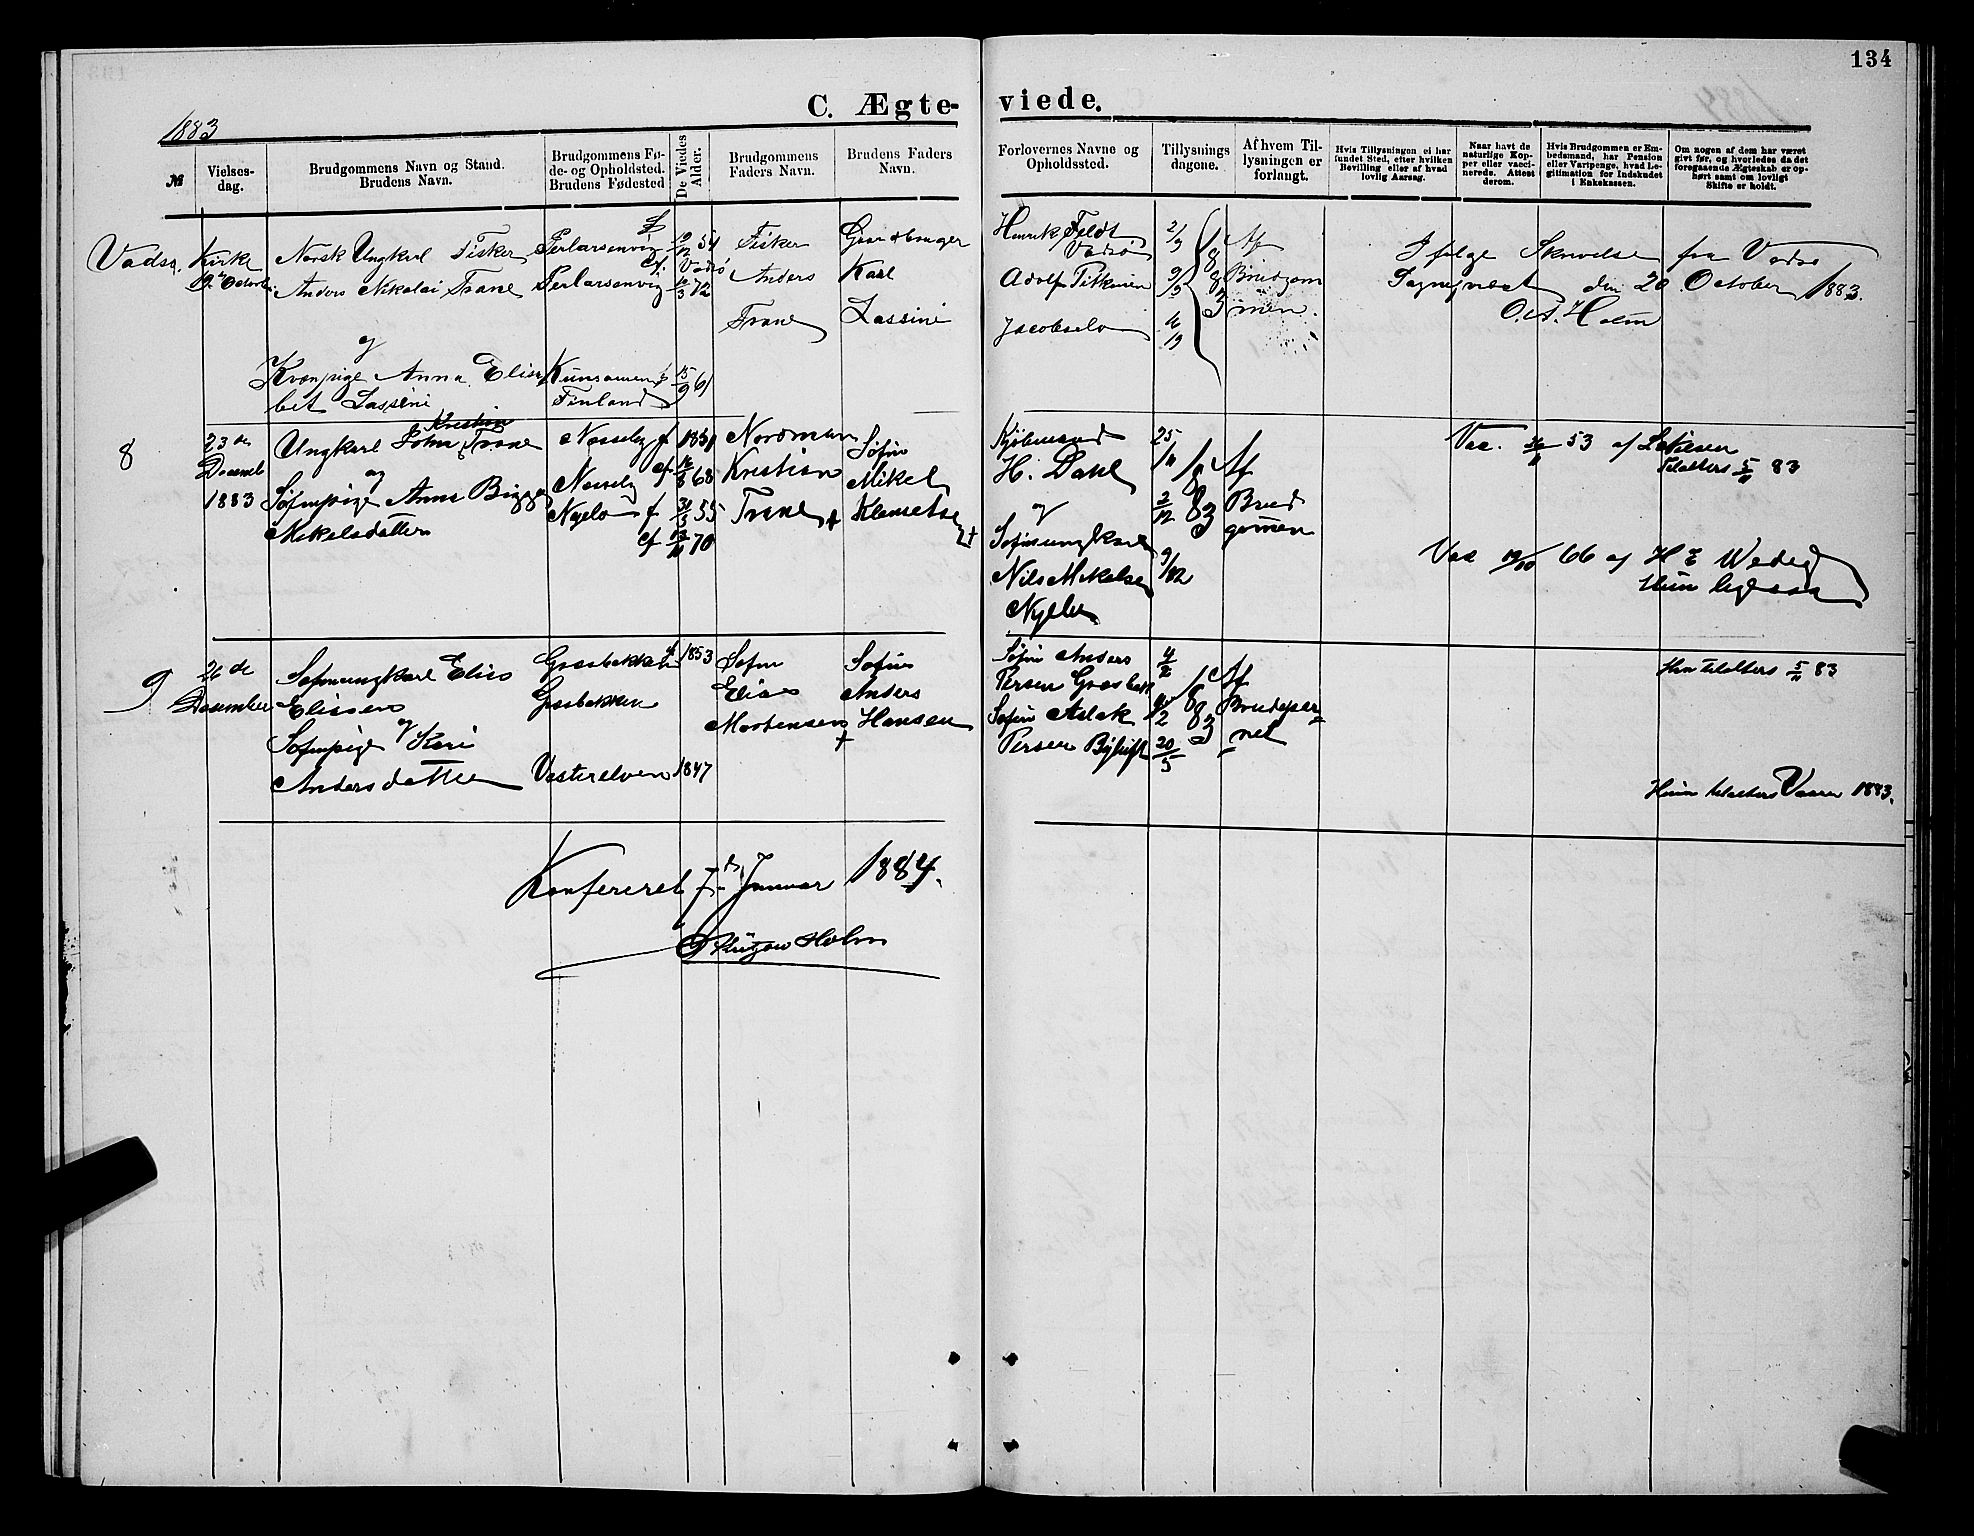 134
C. Ægte-
viede.
1883
№
Vielses-
dag.
Brudgommens Navn og Stand.
Brudens Navn.
Brudgommens Fø-
de- og Opholdsted.
Brudens Fødested
De Viedes
Alder.
Brudgommens
Faders Navn.
Brudens Faders
Navn.
Forlovernes Navne og
Opholdssted.
Tillysnings
dagene.
Af hvem Til-
lysningen er
forlangt.
Hvis Tillysningen ei har
fundet Sted, efter hvilken
Bevilling eller af hvad
lovlig Aarsag.
Naar havt de
naturlige Kop-
per eller vacci-
nerede. Attest
derom.
Hvis Brudgommen er Em-
bedsmand, har Pension
eller Vartpenge, hvad Le-
gitimation for Indskudet
i Enkekassen.
Om nogen af dem har været
givt før, og hvorledes da det
foregaaende Ægteskab er op-
hørt samt om lovligt
Skifte er holdt.
Kirke
Norsk Ungkarl Fisker
Anders Nikolai Trane
og
Kvænpige Anna Elisa
bet Lassini
Perlarsenvig
Perlarsenvig
Finland
54
Vadsø
72
15/9 61
Fisker
Anders
Trane
Gaardbruger
Karl
Lassini
Henrik Feldt
Vadsø
Adolf Pitkänen
Jacobselv
2/9
9/9
1883
Af
Brudgom
men.
Ifølge Skrivelse fra Vadsø
Sogneprest den 20 October 1883.
O. A. Holm
8
23de
Decemb
1883
Kristian
Ungkarl John Trane
og
Søfinpige Anne Bigga
Mikelsdatter
Nesseby f
Nesseby cf
Nyelv f
cf
1851
68
55
70
Nordman
Kristian
Trane +
Søfin
Mikel
Klemetsen
+
Kjøbmand
H. Dahl
og
Søfinungkarl
Nils Mikelsen
Nyelv
25/11
2/12
9/12
1883
Af
Brud
gommen
Vac. 53 af
Tilalters 5/11 83
Vac 19/10 66 af H E Wedeg
Hun ligesaa
9
26de
Desember
Søfinungkarl Elias
Eliasen
og
Søfinpige Kari
Andersdatter
Græsbakken
Græsbakken
Vesterelven
1853
1847
Søfin
Elias
Mortensen
+
Søfin
Anders
Hansen
Søfin Anders
Persen Græsbak
Søfin Aslak
Persen
20/5
1883
Af
Brudepar=
ret
Han tilalters 5/11 83
Hun tilalters Vaaren 1883.
Konfereret 7de Januar 1884.
Holm